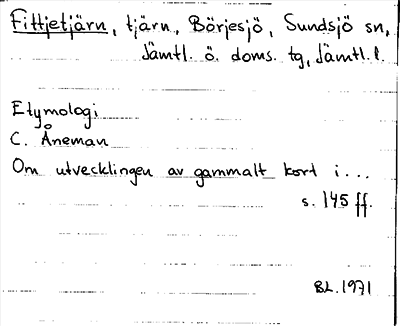 Fittjetjärn, tjärn, Börjesjö, Sundsjö sn,
Jämtl. ö. doms. tg, Jämtl. l.
Etymologi
C. Åneman
Om utvecklingen av gammalt kort i...
s. 145 ff.
BL. 1971